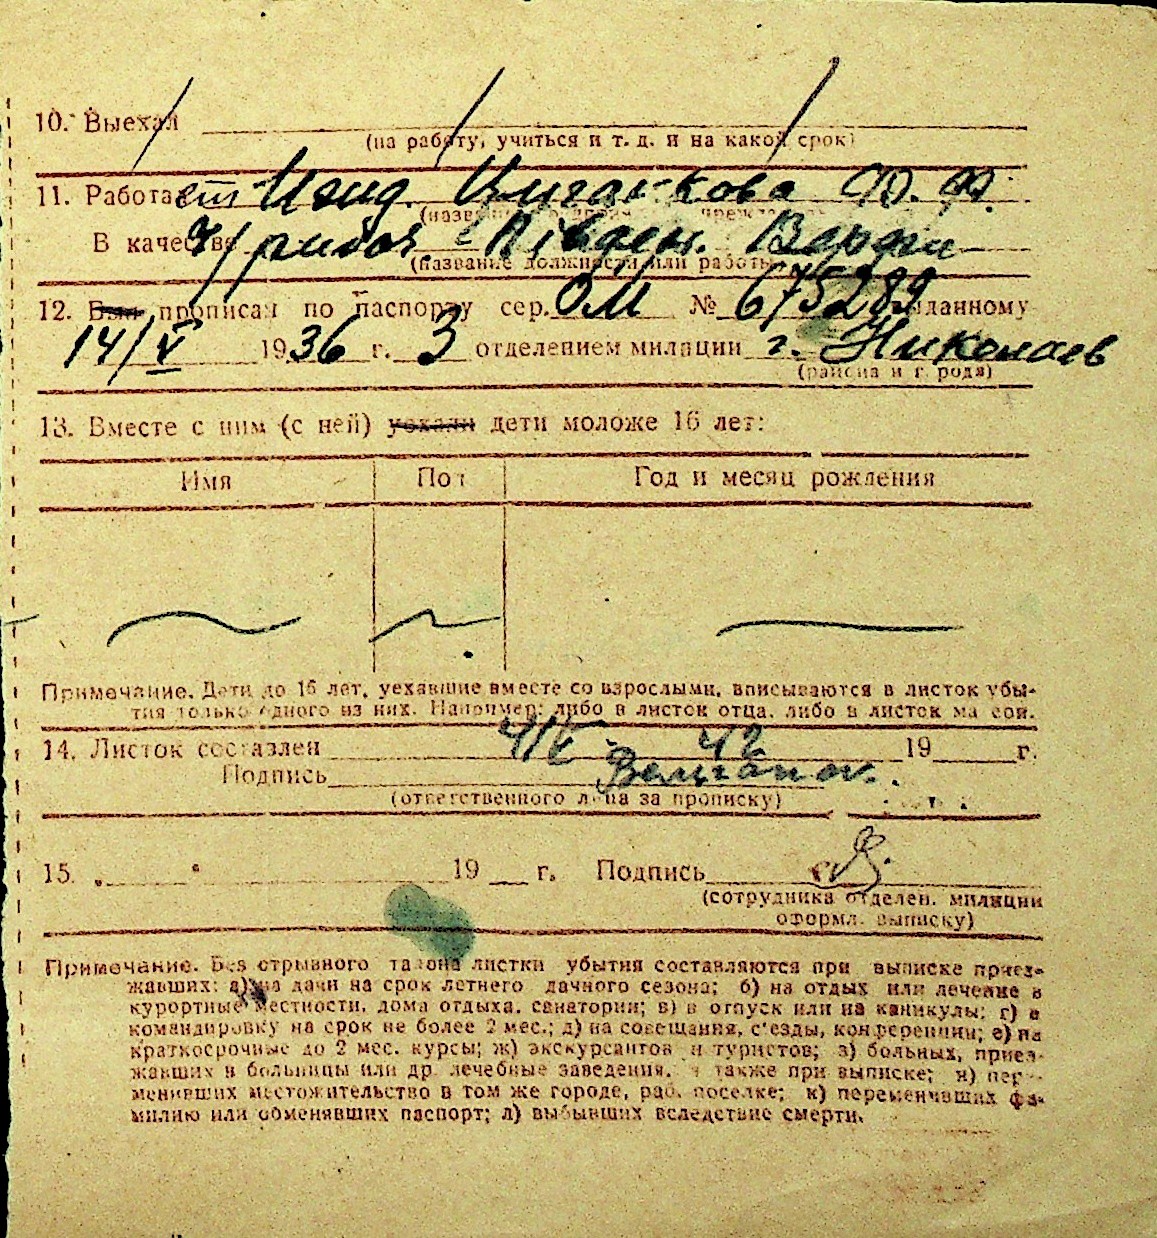 10. Выехал
(на работу, учиться и т. д. и на какой срок)
11. Работает Цыганкова Ф. Ф.
В качестве Верфи
(название должности или работы)
12. Был прописан по паспорту сер. ОМ № 675289 выданному
14/V 1936 г. 3 отделением милиции г. Николаев
(района и города)
13. Вместе с ним (с ней) уехали дети моложе 16 лет:
Имя Пол Год и месяц рождения
Примечание. Дети до 16 лет, уехавшие вместе со взрослыми, вписываются в листок убы-
тия только одного из них. Например: либо в листок отца, либо в листок матери.
14. Листок составлен 4/V 42 19 г.
Подпись
(ответственного лица за прописку)
15. „ “ 19 г. Подпись
(сотрудника отделен. милиции
оформл. выписку)
Примечание. Без отрывного талона листки убытия составляются при выписке приез-
жавших: а) на дачи на срок летнего дачного сезона; б) на отдых или лечение в
курортные местности, дома отдыха, санатории; в) в отпуск или на каникулы; г) в
командировку на срок не более 2 мес.; д) на совещания, с'езды, конференции; е) на
краткосрочные до 2 мес. курсы; ж) экскурсантов и туристов; з) больных, приез-
жавших в больницы или др. лечебные заведения, а также при выписке; и) пере-
менивших местожительство в том же городе, раб. поселке; к) переменивших фа-
милию или обменявших паспорт; л) выбывших вследствие смерти.